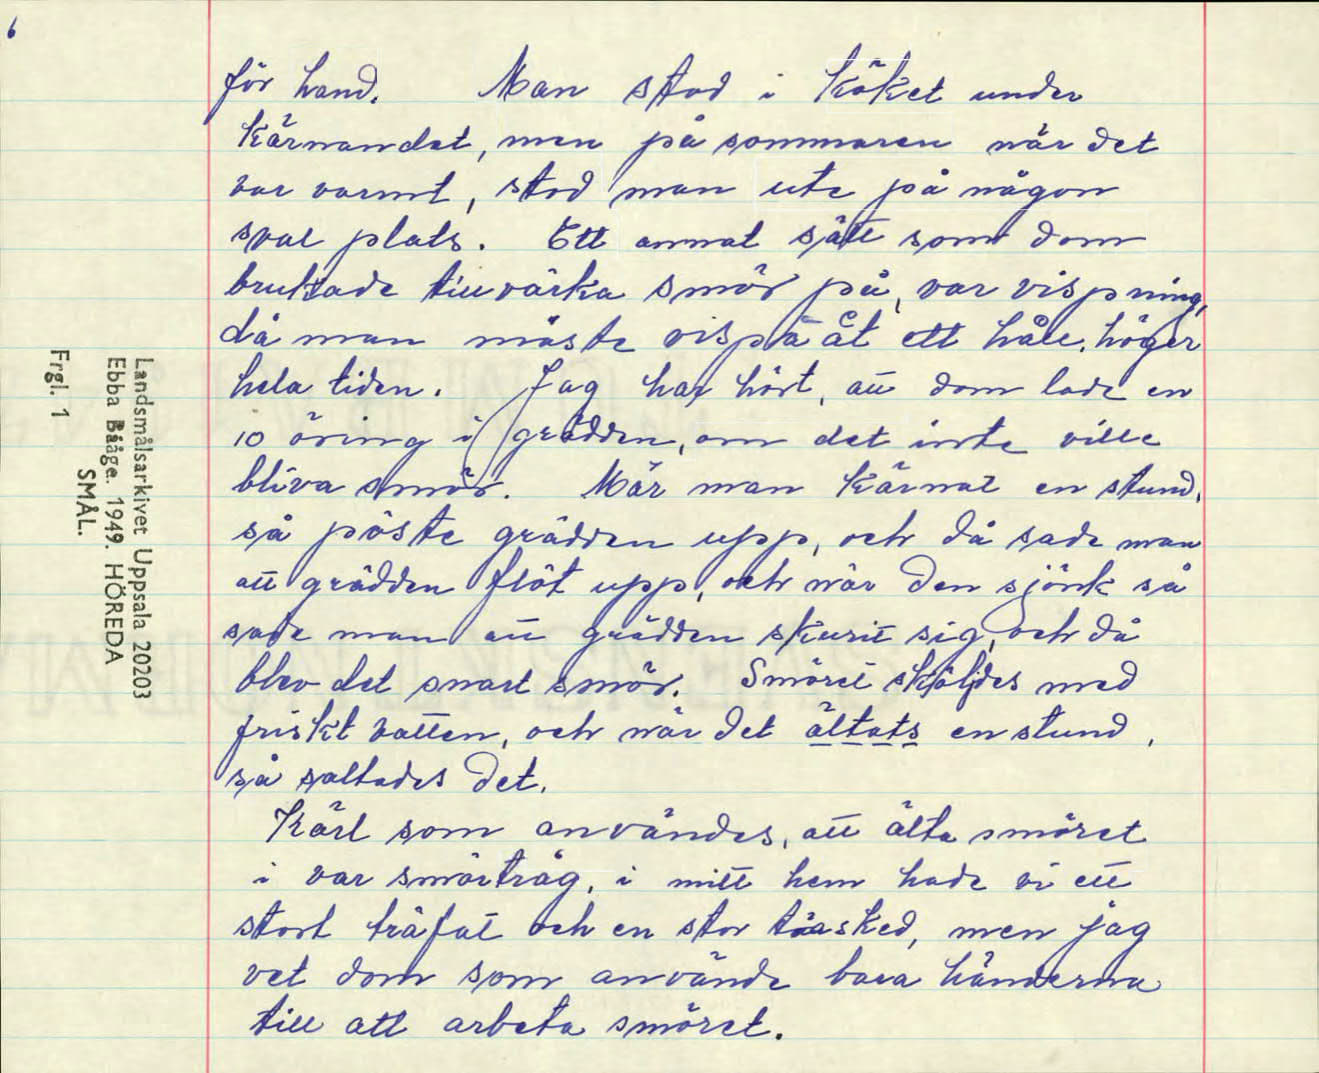 6
för hand. Man stod i köket under
kärnandet, men på sommaren när det
var varmt, stod man ute på någon
sval plats. Ett annat sätt som dom
brukade tillvärka smör på, var vispning,
då man måste vispa åt ett håll, höger
hela tiden. Jag har hört, att dom lade en
10 öring i grädden, om det inte ville
bliva smör. När man kärnat en stund,
så pöste grädden upp, och då sade man
att grädden flöt upp, och när den sjönk så
sade man att grädden skurit sig, och då
blev det snart smör. Smöret sköljdes med
friskt vatten, och när det ältats en stund,
så saltades det.
Kärl som användes, att älta smöret
i var smörtråg, i mitt hem hade vi ett
stort träfat och en stor träsked, men jag
vet dom som använde bara händerna
till att arbeta smöret.
Landsmålsarkivet Uppsala 20203
Ebba Bååge. 1949. HÖREDA
SMÅL.
Frgl. 1